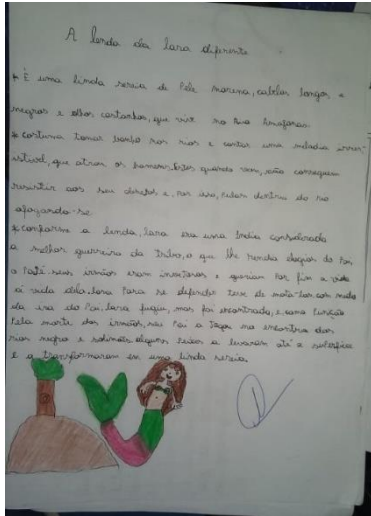 A lenda da Iara diferente
* É uma linda sereia de Pele morena, cabelos longos, e
negros e olhos castanhos, que vive no Rio Amazonas.
* costuma tomar banho nos rios e cantar uma melodia irre-
sistivel, que atrai os homens. Estes quando vem, não conseguem
resistir aos seu e, Por isso, Pulam dentro do rio
afogando-se
* conforme a lenda, Iara era uma India considerada
a melhor guerreira da tribo, o que lhe rendia elogios do Pai,
o Pajé. seus irmãos eram e queriam Por fim a vida
a vida dela. Iara Para se defender teve de mata-los. com medo
da ira do Pai, Iara fugiu, mas foi encontrada, e, como Punição
Pela morte dos irmãos, seu Pai a Jogou no encontro dos
rios negro e solimões. alguns Peixes a levaram até a superfície
e a transformaram em uma linda sereia.